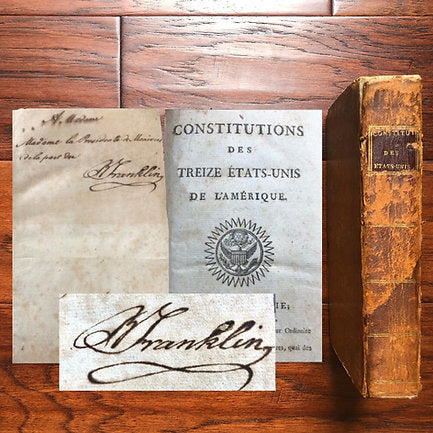 A Madame
Madame la Presidente de Meinieres
de la part de
B Franklin
CONSTITUTIONS
DES
TREIZE ÉTATS-UNIS
DE L'AMÉRIQUE.
IE;
ur Ordinaire
res, quai des
B Franklin
CONSTITUTI
DES
ETATS-UNIS